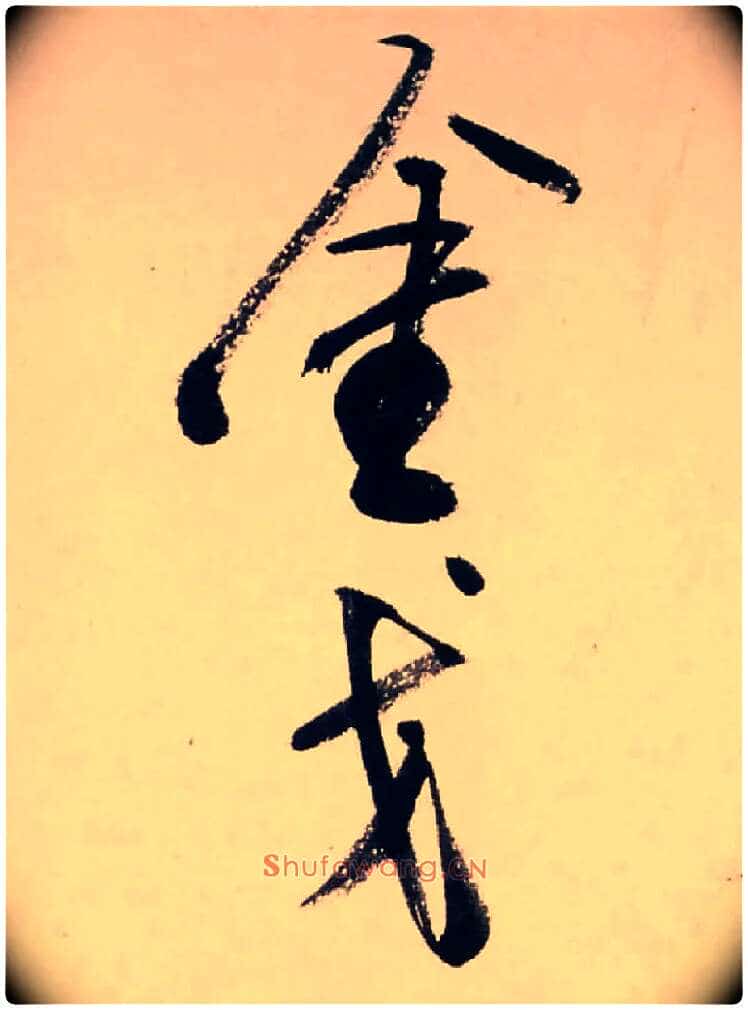 金戈
Shufawang.CN